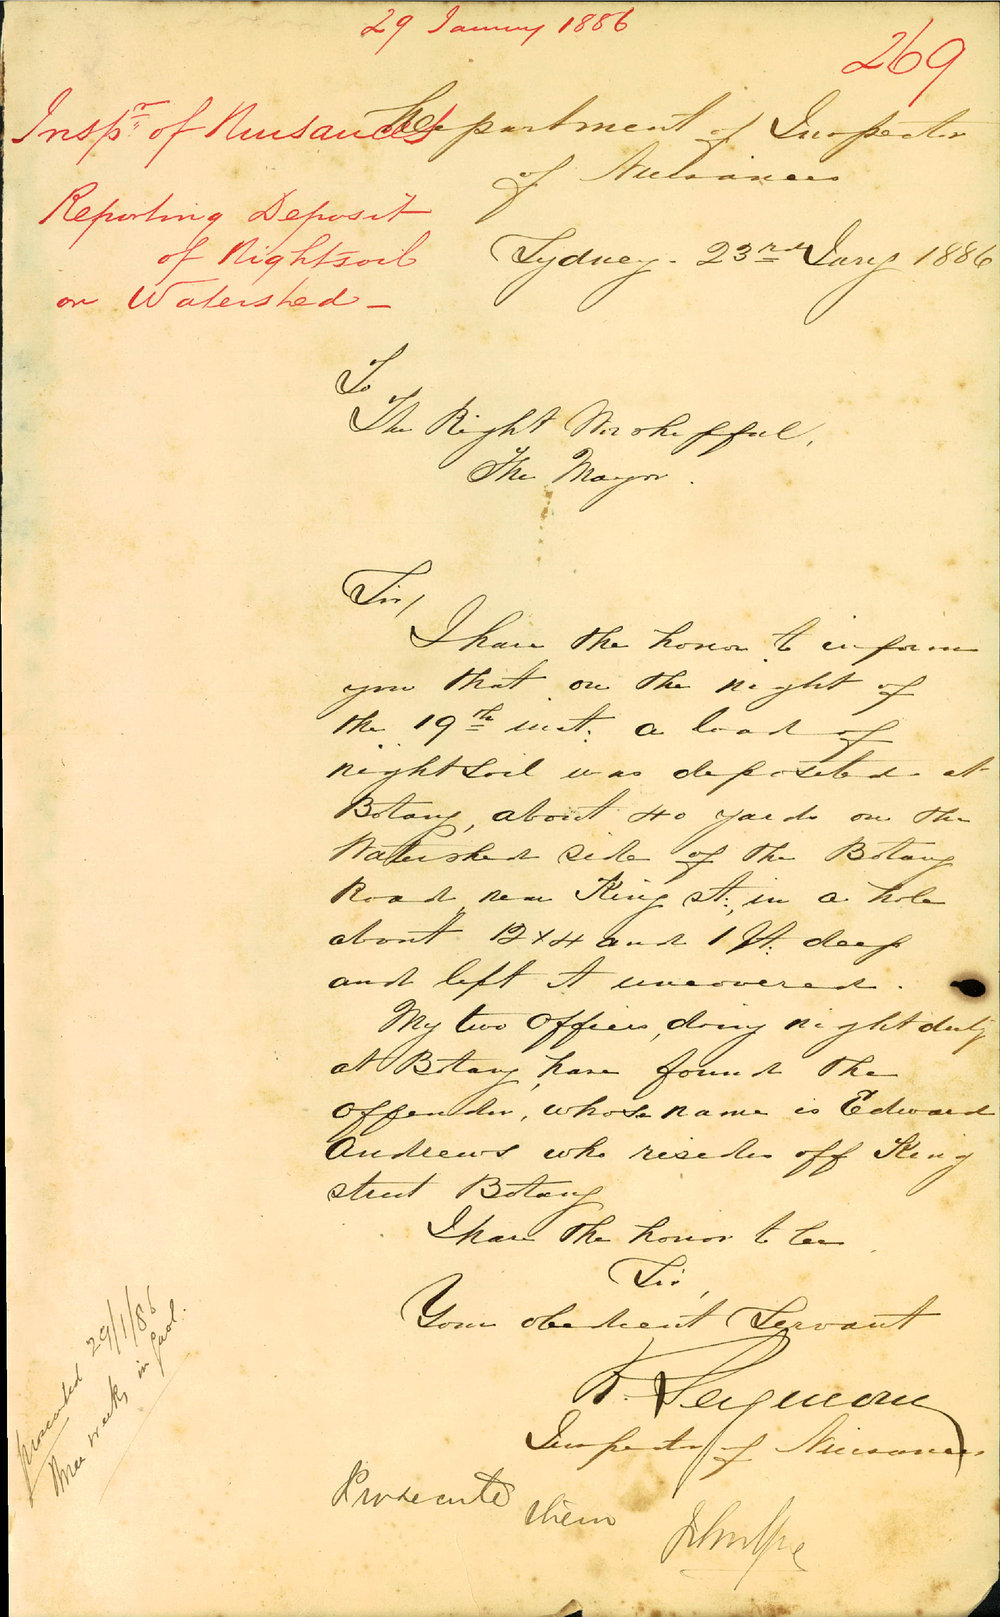 29 January 1886
269
Inspr of Nuisances
Reporting Deposit
of Nightsoil
on Watershed -
Department of Inspector
of Nuisances
Sydney - 23rd Jany 1886
To
The Right Worshipful,
The Mayor.
Sir/
I have the honor to inform
you that on the night of
the 19th inst: a load of
nightsoil was deposited at
Botany, about 40 yards on the
Watershed side of the Botany
Road, near King st:, in a hole
about 12 x 4 and 1 ft: deep
and left it uncovered.
My two Officers, doing night duty
at Botany, have found the
offender, whose name is Edward
Andrews who resides off King
street Botany
I have the honor to be
Sir,
Your obedient Servant
Seymour
Inspector of Nuisances
Prosecute them
prosecuted 29/1/86
three weeks in gaol.